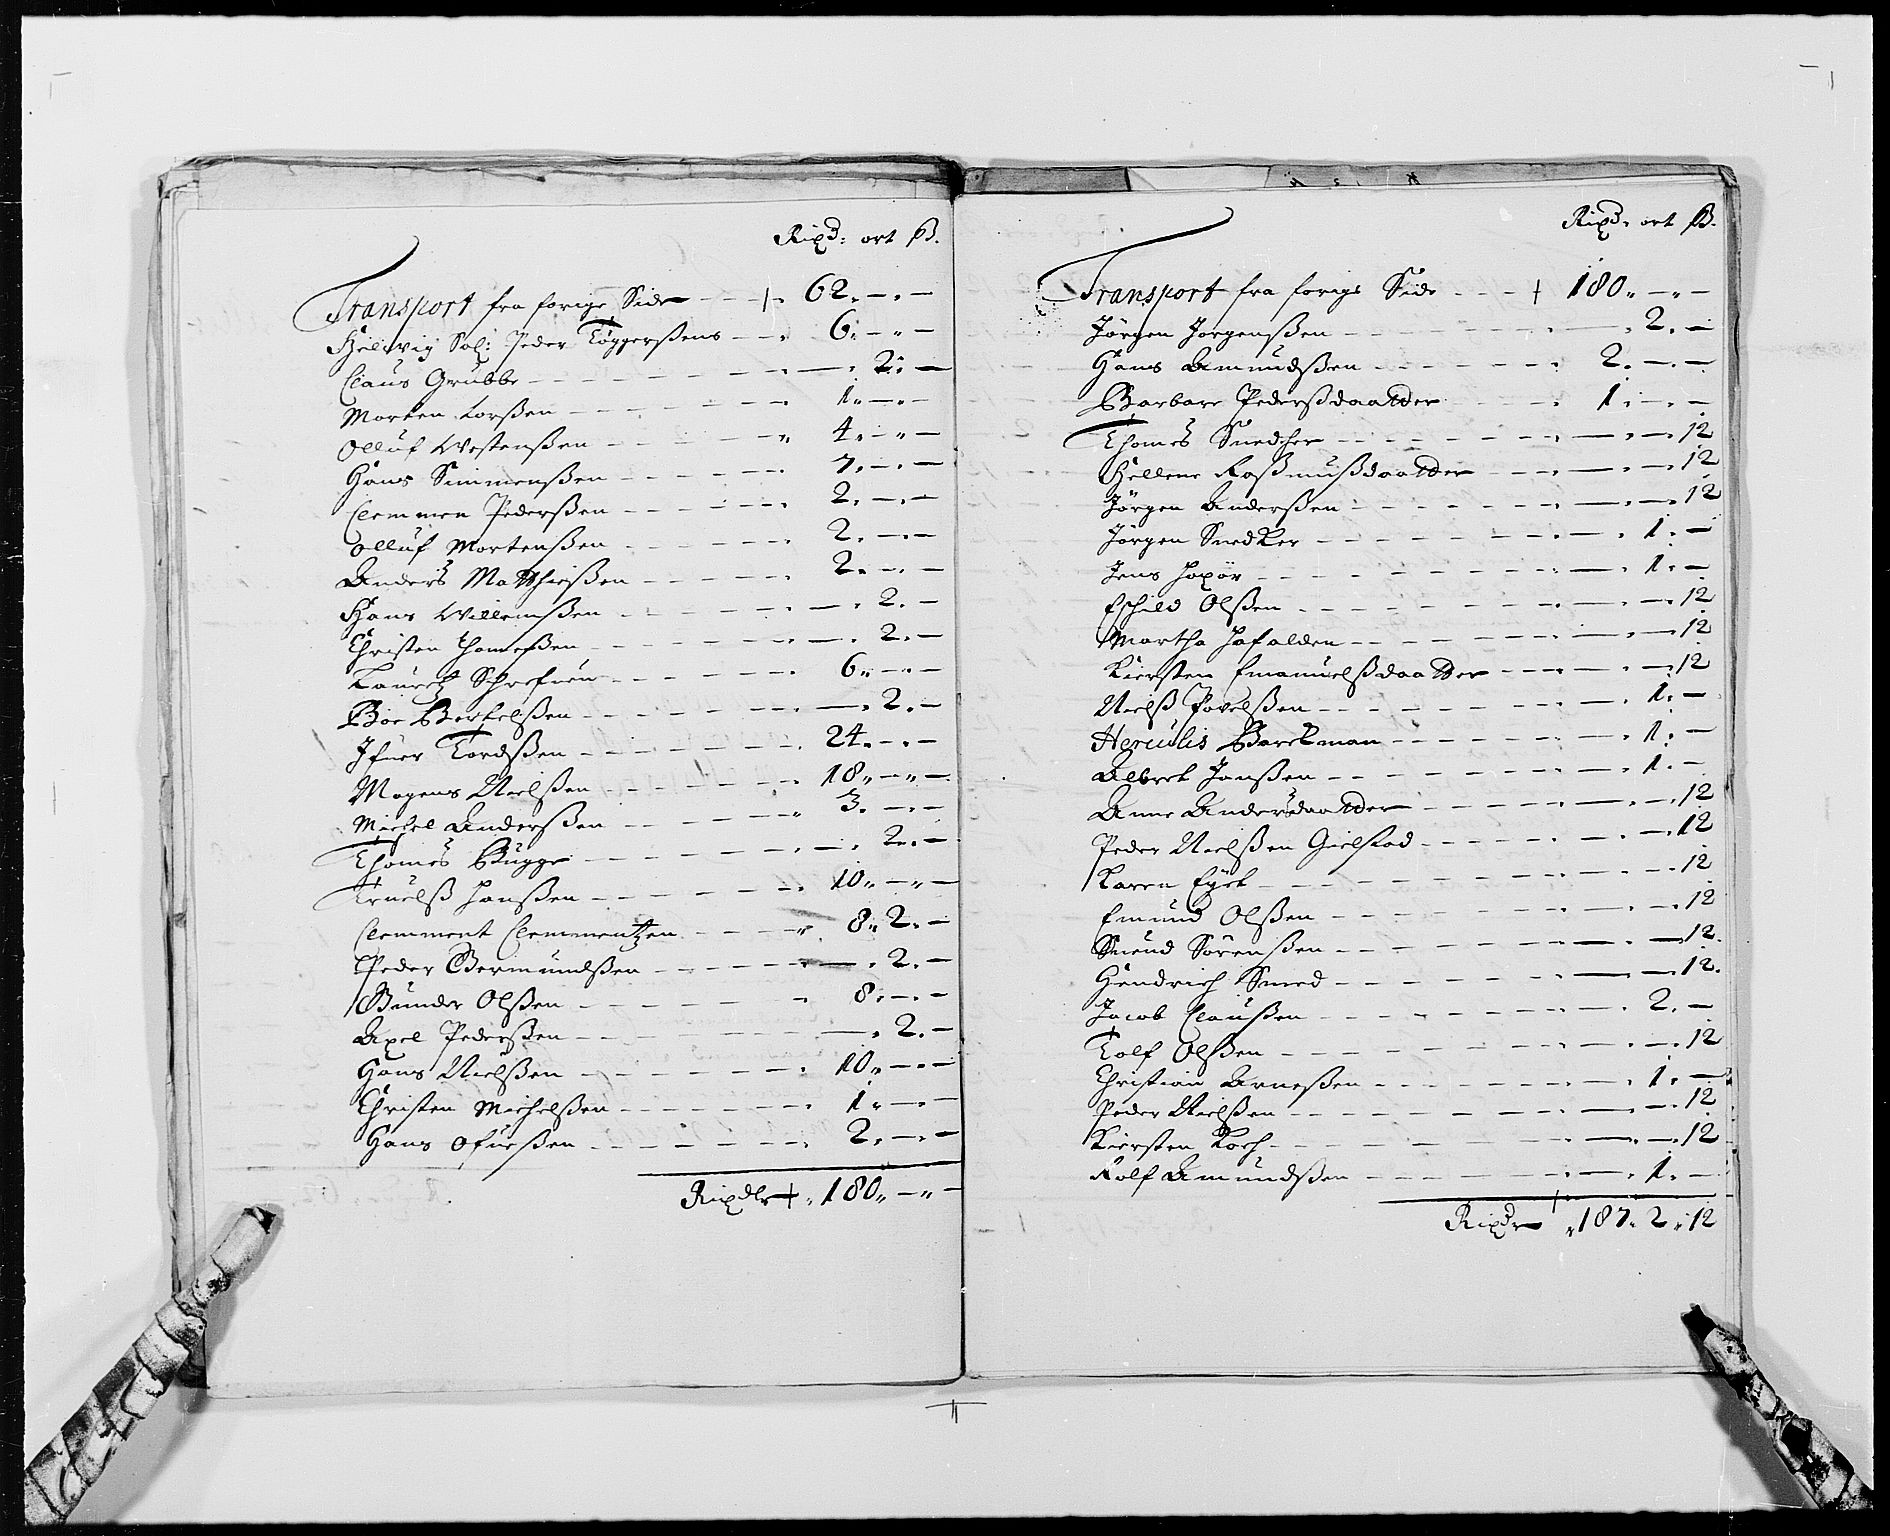 Rixd: ort ß.
Transport fra forige Side - - - 62. - . -
Helwig Sal: Peder Tøggerßens - - . 6. - " -
Claus Grubbe - - - . - . 2. -
Morten Lorßen - - - . 1. - . -
Olluf Westenßen - - - " 4. - " -
Hans Simmenßen - - - . 7. - . -
Clemmen Pederßen - - - . 2. - . -
Olluf Mortenßen - - - . 2. - . -
Anders Matthießen - - - . 2. - . -
Hans Willemßen - - - . - . 2. -
Christen Thomeßen - - - . - . 2. -
Lauretz - - - . 6. - . -
Boe Bertelßen - - - . - . 2. -
Ifuer Tordßen - - - . 24. - . -
Mogens Nielßen - - - . 18. - " -
Michel Anderßen - - - " 3. - . -
Thomes Bugge - - - . - . 2. -
Truelß Janßen - - - . 10. - " -
Clemment Clemmentzen - - - " 8. 2. -
Peder Germundßen - - - . - . 2. -
Gunder Olßen - - - . 8. - . -
Axel Pederßen - - - . - . 2. -
Hans Nielßen - - - . 10. - . -
Christen Michelßen - - - . 1. - . -
Hans Ofueßen - - - . 2. - . -
Rixdlr . 180. - " -
Rixd: ort ß.
Transport fra forige Side - - - 180. - " -
Jørgen Jørgenßen - - - . - . 2. -
Hans Amundßen - - - . 2. - . -
Barbare Pederßdaatter - - - . 1. - . -
Thomes Snedcher - - - . - . - . 12
Hellene Raßmußdaatter - - - . - . - . 12
Jørgen Anderßen - - - . - . - . 12
Jørgen Snedker - - - . - . 1. -
Jens - - - . - . 1. -
Eschild Olßen - - - . - . - . 12
Martha - - - . - . - . 12
Kiersten Emanuelßdaatter - - - . - . - . 12
Nielß Povelßen - - - . - . 1. -
Herculis Barckman - - - . - . 1. -
Albret Janßen - - - . - . 1. -
Anne Andersdaatter - - - . - . - . 12
Peder Nielßen Gielstad - - - . - . - . 12
Karen - - - . - . - . 12
Emund Olßen - - - . - . - . 12
Suend Sørenßen - - - . - . - . 12
Hendrich Smed - - - . - . - . 12
Jacob Claußen - - - . - . 2. -
Tolf Olßen - - - . - . - . 12
Christian Arneßen - - - . - . 1. -
Peder Nielßen - - - . - . - . 12
Kiersten Koch - - - . - . - . 12
Rolf Amundßen - - - . - . 1. -
Rixdr . 187. 2 . 12